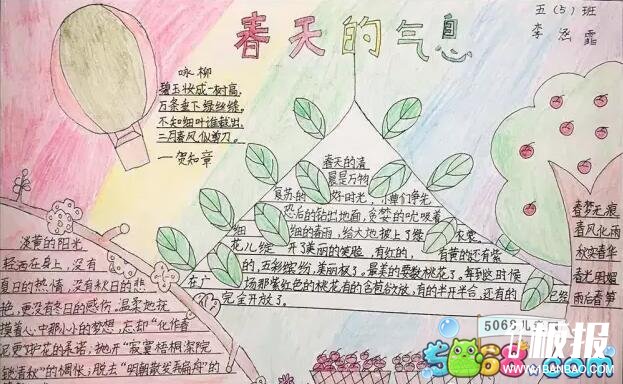 春天的气息
五(5)班
李 霏
咏柳
碧玉妆成一树高,
万条垂下绿丝绦。
不知细叶谁裁出,
二月春风似剪刀。
一贺知章
春天的清
晨是万物
复苏的 好时光,小草们争先
恐后的钻出地面,贪婪的吮吸着
细细的春雨,给大地披上了绿 衣裳。
花儿绽 开了美丽的笑脸,有红的, 有黄的还有紫
的,五彩缤纷,美丽极了。最美的要数桃花了。每到这时候
在广 场那紫红色的桃花有的含苞欲放,有的半开半合,还有的 已经
完全开放了。
春梦无痕
春风化雨
秋实春华
春光明媚
雨后春笋
淡黄的阳光
轻洒在身上,没有
夏日的热情,没有秋日的悲
艳,更没有冬日的感伤。温柔地抚
摸着心中那小小的梦想,忘却“化作春
泥更护花的承诺,抛开“寂寞梧桐深院
锁清秋”的惆怅,脱去“明朝散发弄扁舟”的
5068儿童网
5068.com
1极报
WWW.1BANBAO.COM